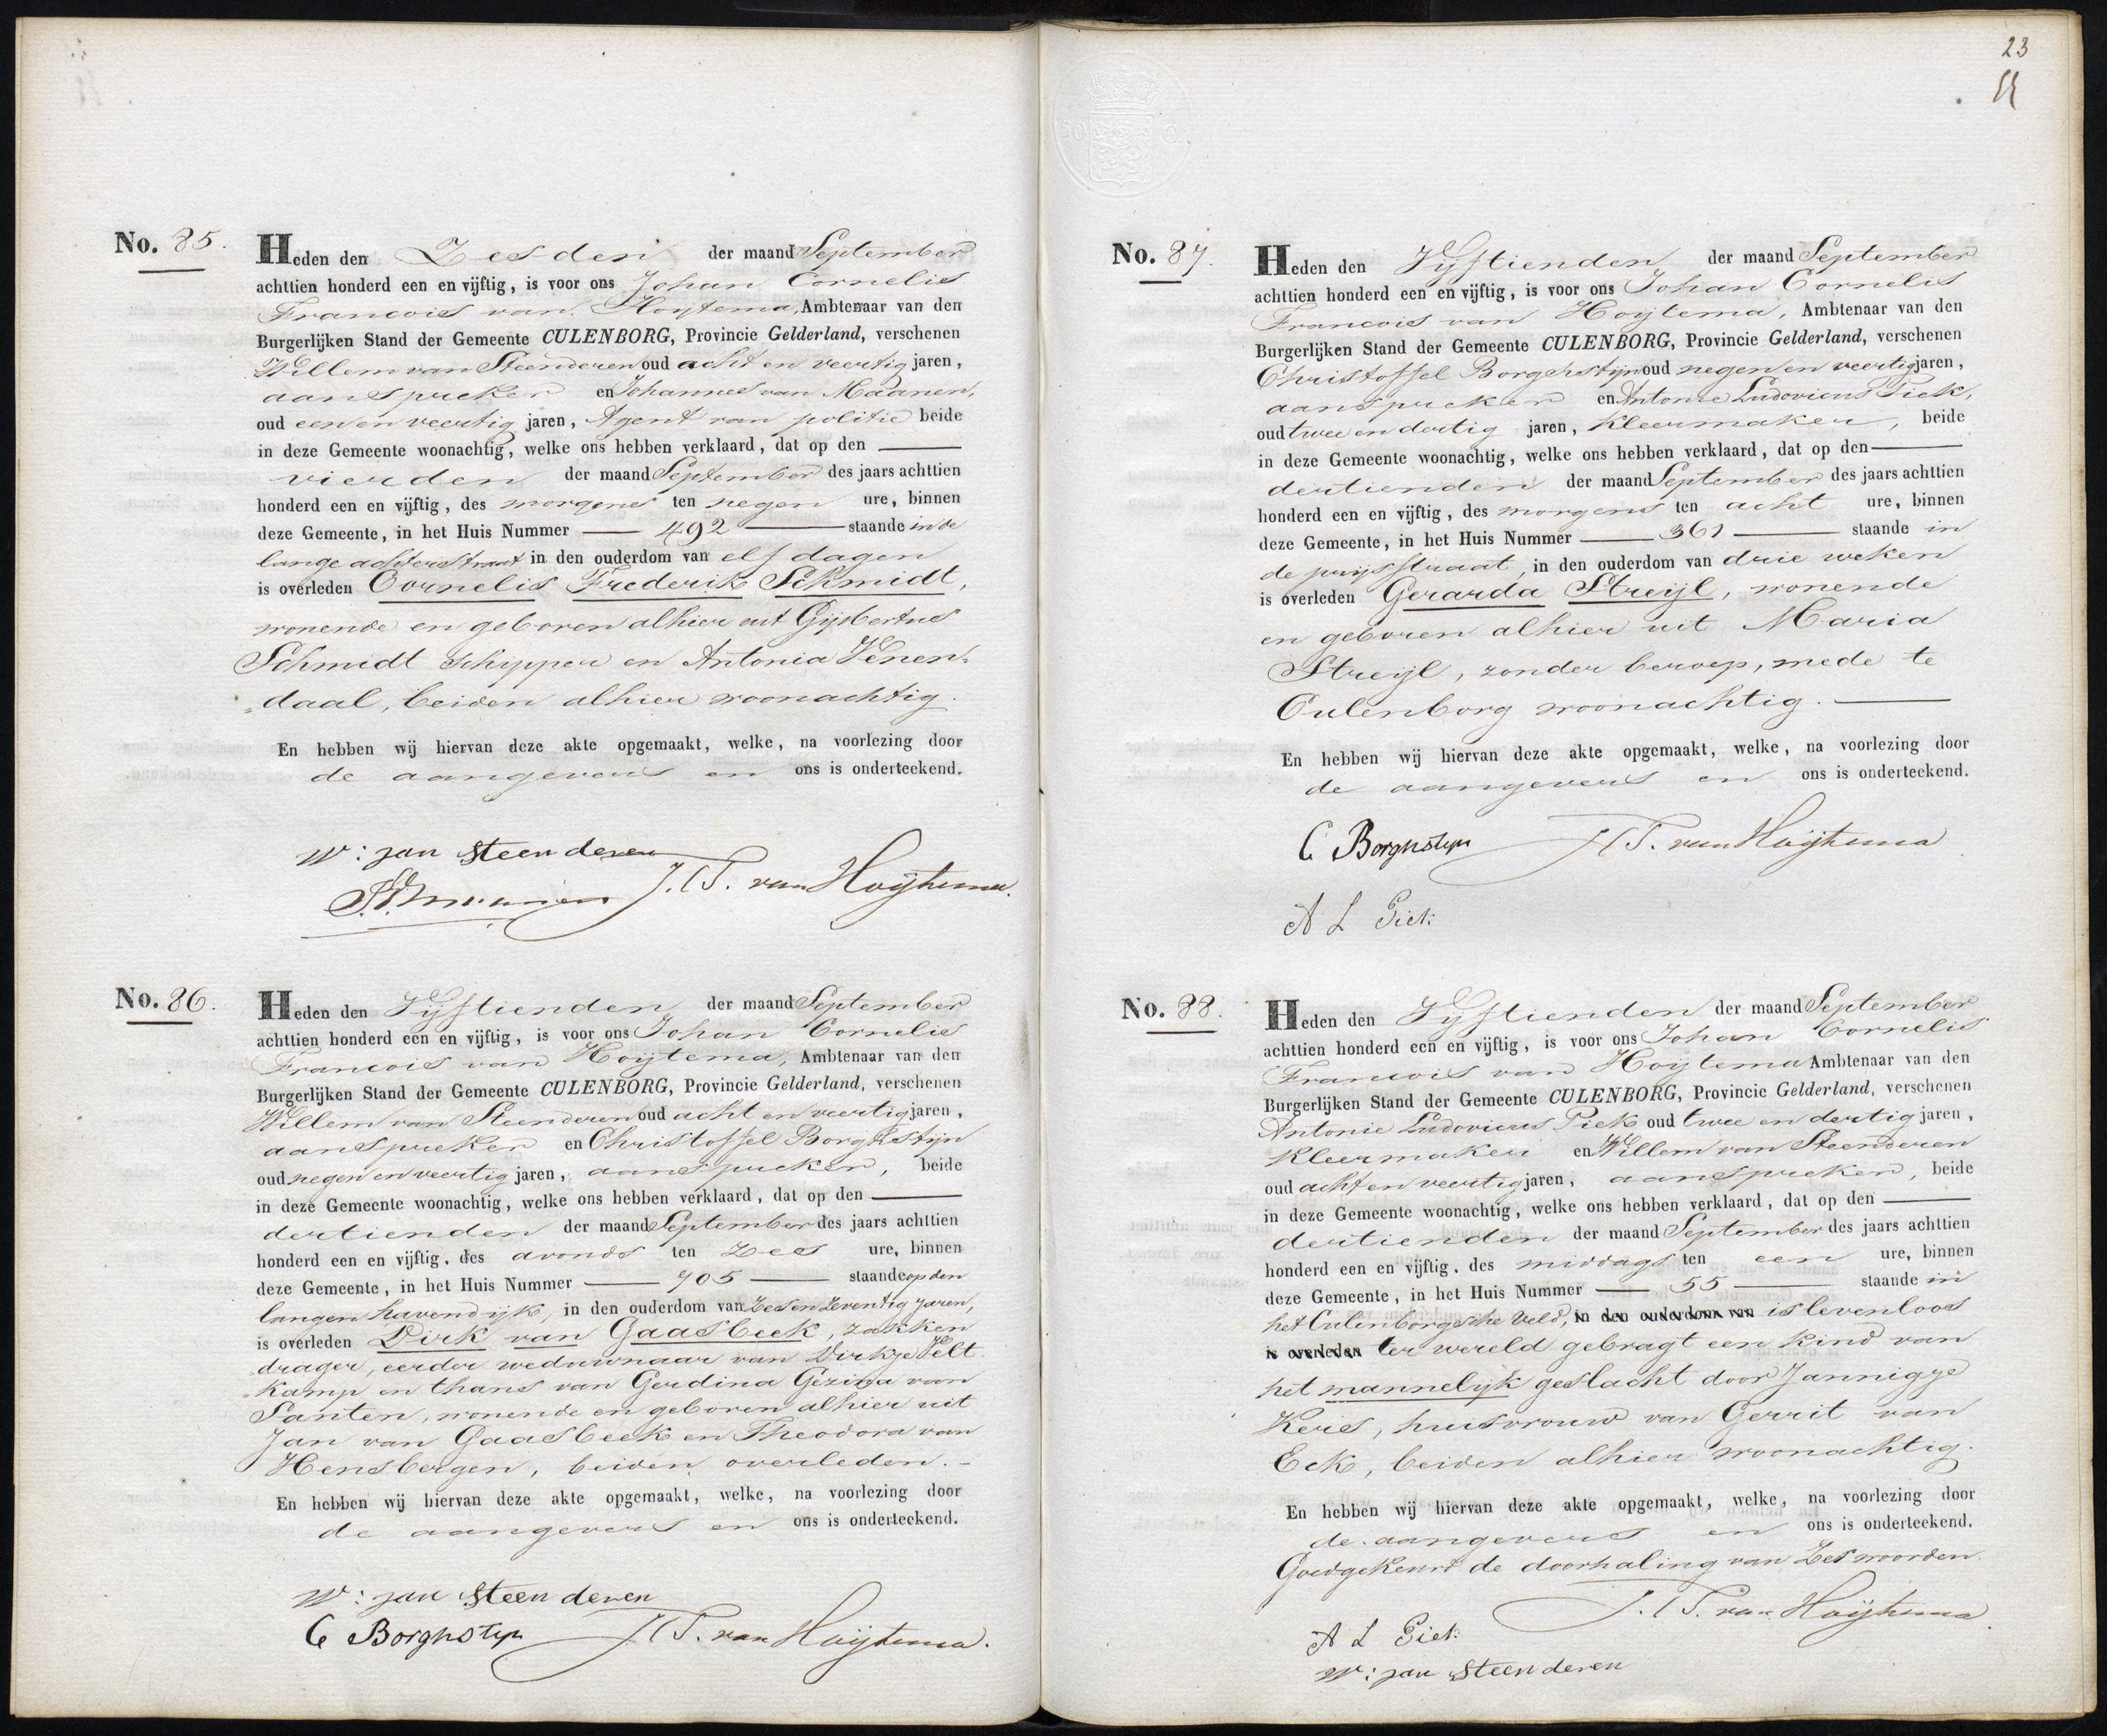 No. 85.
Heden den Zesden der maand September
achttien honderd een en vijftig, is voor ons Johan Cornelis
Francois van Hoytema, Ambtenaar van den
Burgerlijken Stand der Gemeente CULENBORG, Provincie Gelderland, verschenen
Willem van Steenderen oud acht en veertig jaren,
aanspreker en Johannes van Maanen,
oud een en veertig jaren, Agent van politie beide
in deze Gemeente woonachtig, welke ons hebben verklaard, dat op den
vierden der maand September des jaars achttien
honderd een en vijftig, des morgens ten negen ure, binnen
deze Gemeente, in het Huis Nummer 492 staande in de
lange achterstraat in den ouderdom van elf dagen
is overleden Cornelis Frederik Schmidt,
wonende en geboren alhier uit Gijsbertus
Schmidt schipper en Antonia Venen-
daal, beiden alhier woonachtig.
En hebben wij hiervan deze akte opgemaakt, welke, na voorlezing door
de aangevers en ons is onderteekend.
W: van Steenderen
J. C. F. van Hoijtema.
No. 86.
Heden den Vijftienden der maand September
achttien honderd een en vijftig, is voor ons Johan Cornelis
Francois van Hoytema, Ambtenaar van den
Burgerlijken Stand der Gemeente CULENBORG, Provincie Gelderland, verschenen
Willem van Steenderen oud acht en veertig jaren,
aanspreker en Christoffel Borghstijn
oud negen en veertig jaren, aanspreker, beide
in deze Gemeente woonachtig, welke ons hebben verklaard, dat op den
dertienden der maand September des jaars achttien
honderd een en vijftig, des avonds ten zes ure, binnen
deze Gemeente, in het Huis Nummer 705 staande op den
langen havendijk, in den ouderdom van zes en zeventig jaren,
is overleden Dirk van Gaasbeek, zakken
drager, eerder weduwnaar van Dirkje Velt-
kamp en thans van Gerdina Gezina van
Santen, wonende en geboren alhier uit
Jan van Gaasbeek en Theodora van
Hensbergen, beiden overleden.
En hebben wij hiervan deze akte opgemaakt, welke, na voorlezing door
de aangevers en ons is onderteekend.
W: van Steenderen
C Borghstijn J. C. F. van Hoijtema.
23
No. 87.
Heden den Vijftienden der maand September
achttien honderd een en vijftig, is voor ons Johan Cornelis
Francois van Hoytema, Ambtenaar van den
Burgerlijken Stand der Gemeente CULENBORG, Provincie Gelderland, verschenen
Christoffel Borghstijn oud negen en veertig jaren,
aanspreker en Antonie Ludovicus Piek,
oud twee en dertig jaren, kleermaker, beide
in deze Gemeente woonachtig, welke ons hebben verklaard, dat op den
dertienden der maand September des jaars achttien
honderd een en vijftig, des morgens ten acht ure, binnen
deze Gemeente, in het Huis Nummer 361 staande in
de prijsstraat, in den ouderdom van drie weken
is overleden Gerarda Streijl, wonende
en geboren alhier uit Maria
Streijl, zonder beroep, mede te
Culenborg woonachtig.
En hebben wij hiervan deze akte opgemaakt, welke, na voorlezing door
de aangevers en ons is onderteekend.
C Borghstijn J. C. F. van Hoijtema
A L Piek
No. 88.
Heden den Vijftienden der maand September
achttien honderd een en vijftig, is voor ons Johan Cornelis
Francois van Hoytema Ambtenaar van den
Burgerlijken Stand der Gemeente CULENBORG, Provincie Gelderland, verschenen
Antonie Ludovicus Piek oud twee en dertig jaren,
kleermaker en Willem van Steenderen
oud acht en veertig jaren, aanspreker, beide
in deze Gemeente woonachtig, welke ons hebben verklaard, dat op den
dertienden der maand September des jaars achttien
honderd een en vijftig, des middags ten een ure, binnen
deze Gemeente, in het Huis Nummer 55 staande in
het Culenborgsche veld, in den ouderdom van is levenloos
is overleden ter wereld gebragt een kind van
het mannelijk geslacht door Jannigje
Keris, huisvrouw van Gerrit van
Eck, beiden alhier woonachtig.
En hebben wij hiervan deze akte opgemaakt, welke, na voorlezing door
de aangevers en ons is onderteekend.
Goedgekeurd de doorhaling van zes woorden.
J. C. F. van Hoijtema
A L Piek
W: van Steenderen